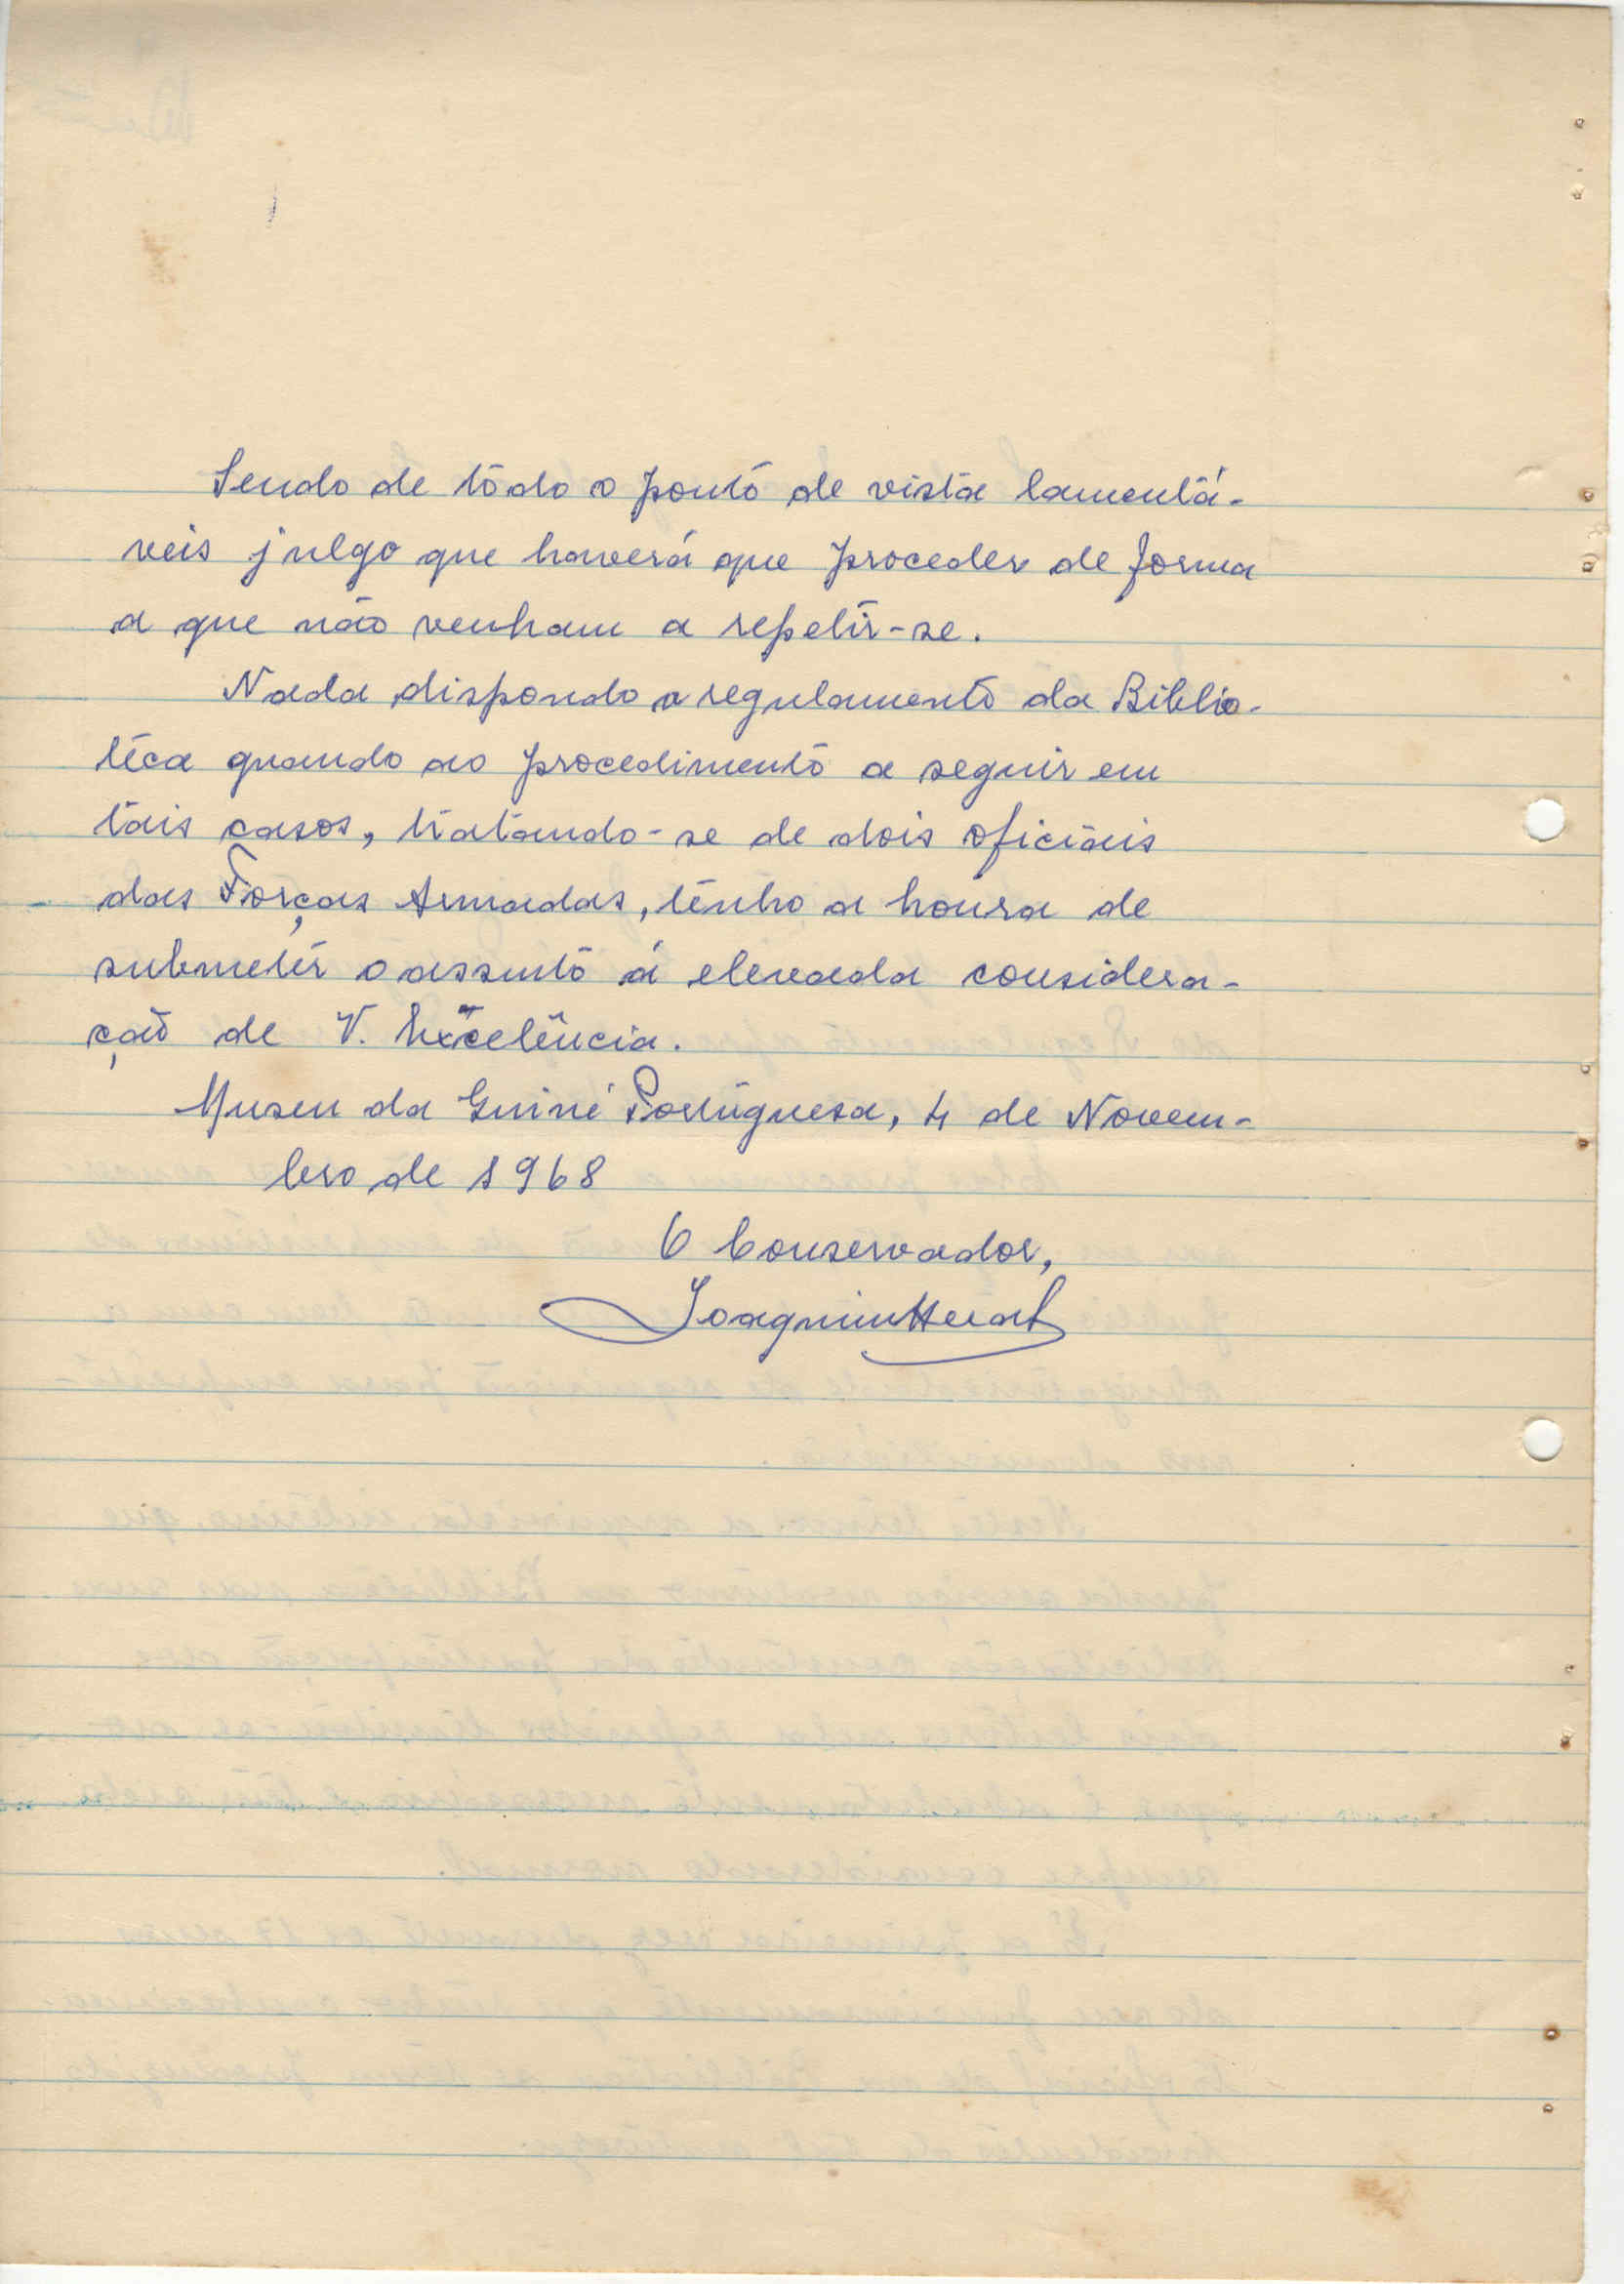 Sendo de todo o ponto de vista lamentá-
veis julgo que haverá que proceder de forma
a que não venham a repetir-se.
Nada dispondo o regulamento da Biblio-
teca quando ao procedimento a seguir em
tais casos, tratando-se de dois oficiais
das Forças Armadas, tenho a honra de
submeter o assunto á elevada considera-
ção de V. Excelência.
Museu da Guiné Portuguesa, 4 de Novem-
bro de 1968
O Conservador,
Joaquim